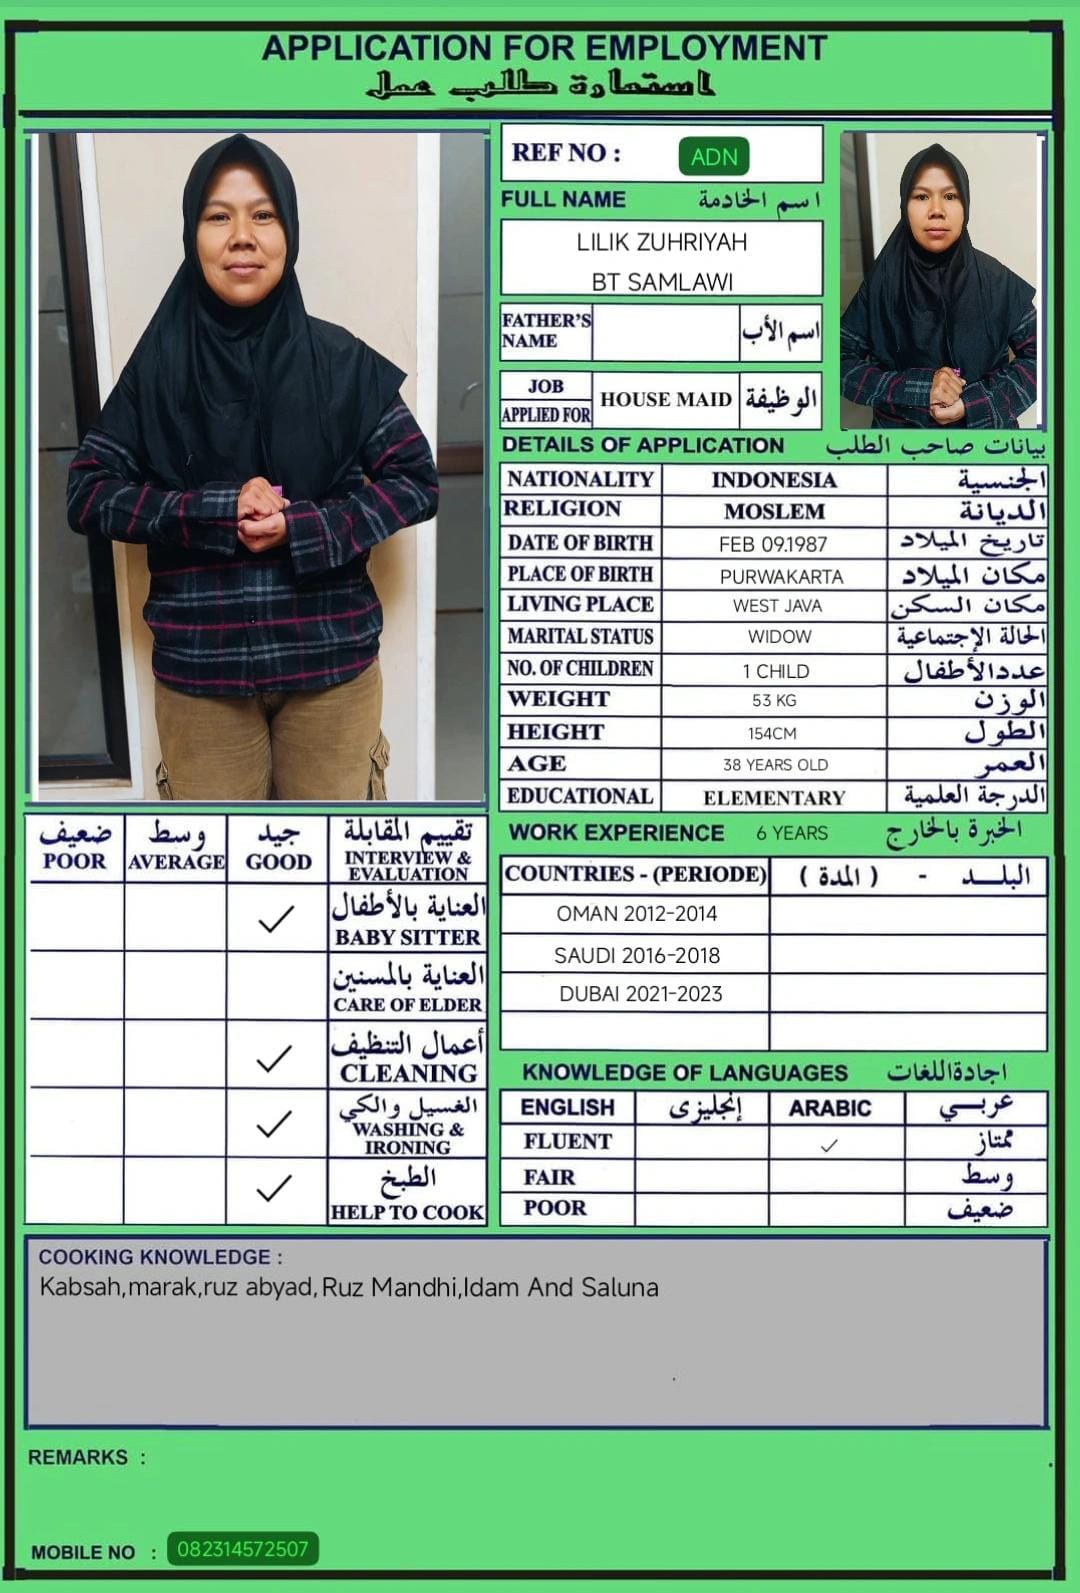 APPLICATION FOR EMPLOYMENT
استمارة طلب عمل
REF NO : ADN
FULL NAME اسم الخادمة
LILIK ZUHRIYAH
BT SAMLAWI
FATHER'S NAME اسم الأب
JOB APPLIED FOR HOUSE MAID الوظيفة
DETAILS OF APPLICATION بيانات صاحب الطلب
NATIONALITY INDONESIA الجنسية
RELIGION MOSLEM الديانة
DATE OF BIRTH FEB 09.1987 تاريخ الميلاد
PLACE OF BIRTH PURWAKARTA مكان الميلاد
LIVING PLACE WEST JAVA مكان السكن
MARITAL STATUS WIDOW الحالة الإجتماعية
NO. OF CHILDREN 1 CHILD عدد الأطفال
WEIGHT 53 KG الوزن
HEIGHT 154CM الطول
AGE 38 YEARS OLD العمر
EDUCATIONAL ELEMENTARY الدرجة العلمية
ضعيف وسط جيد تقييم المقابلة
POOR AVERAGE GOOD INTERVIEW & EVALUATION
العناية بالأطفال
✓ BABY SITTER
العناية بالمسنين
CARE OF ELDER
أعمال التنظيف
✓ CLEANING
الغسيل والكي
✓ WASHING & IRONING
الطبخ
✓ HELP TO COOK
WORK EXPERIENCE 6 YEARS الخبرة بالخارج
COUNTRIES - (PERIODE) البلد - ( المدة )
OMAN 2012-2014
SAUDI 2016-2018
DUBAI 2021-2023
KNOWLEDGE OF LANGUAGES اجادة اللغات
ENGLISH إنجليزى ARABIC عربي
FLUENT ✓ ممتاز
FAIR وسط
POOR ضعيف
COOKING KNOWLEDGE :
Kabsah,marak,ruz abyad,Ruz Mandhi,Idam And Saluna
REMARKS :
MOBILE NO : 082314572507